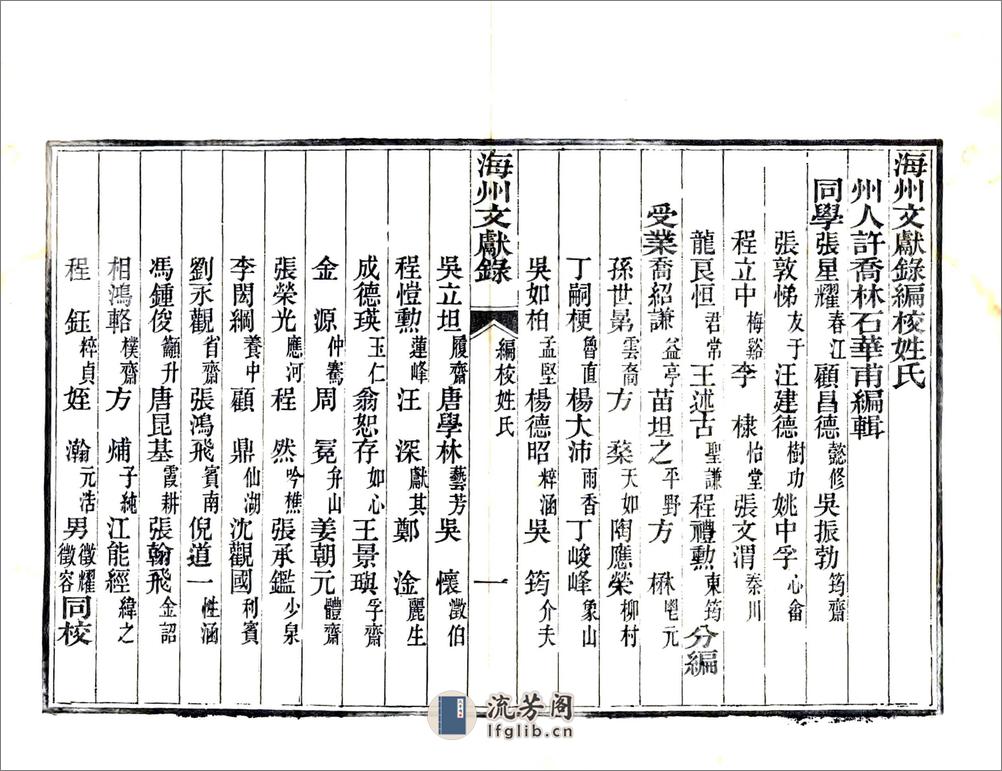 海州文獻錄編校姓氏
州人許喬林石華甫編輯
同學張星耀春江 顧昌德懿修 吳振勃筠齋
張敦悌友于 汪建德樹功 姚中孚心畬
程立中梅谿 李棣怡堂 張文渭秦川
龍良恒君常 王述古聖謙 程禮勲東筠 分編
受業喬紹謙益亭 苗坦之平野 方楙元
孫世昜雲裔 方棻天如 陶應榮柳村
丁嗣梗魯直 楊大沛雨香 丁峻峰象山
吳如柏孟堅 楊德昭粹涵 吳筠介夫
海州文獻錄 編校姓氏 一
吳立坦履齋 唐學林藝芳 吳懷澂伯
程愷勲蓮峰 汪深獻其 鄭淦麗生
成德瑛玉仁 翁恕存如心 王景璵孚齋
金源仲騫 周冕弁山 姜朝元體齋
張榮光應河 程然吟樵 張承鑑少泉
李閎綱養中 顧鼎仙湖 沈觀國利賓
劉永觀省齋 張鴻飛賓南 倪道一性涵
馮鍾俊籲升 唐昆基霞耕 張翰飛金詔
相鴻輅樸齋 方烳子純 江能經緯之
程鈺粹貞 姪瀚元浩 男徵耀徵容同校
流芳阁
lfglib.cn